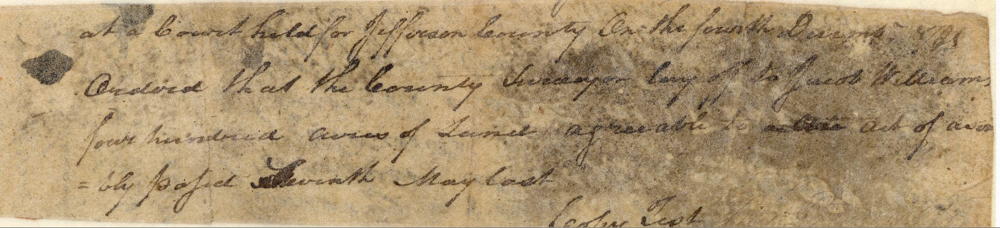 at a Court held for Jefferson County On the fourth Decemr
Ordird that the County Surveyor lay off to Jacob Williams
four hundred acres of Land agreeable to act of assm
=bly passed Seventh May last
Copy Test